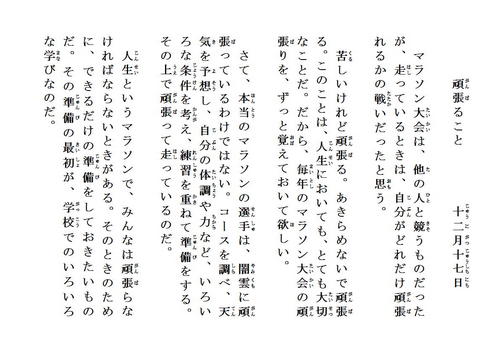 頑張ること　　　十二月十七日
マラソン大会は、他の人と競うものだった
が、走っているときは、自分がどれだけ頑張
れるかの戦いだったと思う。
苦しいけれど頑張る。あきらめないで頑張
る。このことは、人生においても、とても大切
なことだ。だから、毎年のマラソン大会の頑
張りを、ずっと覚えておいて欲しい。
さて、本当のマラソンの選手は、闇雲に頑
張っているわけではない。コースを調べ、天
気を予想し、自分の体調や力など、いろい
ろな条件を考え、練習を重ねて準備をする。
その上で頑張って走っているのだ。
人生というマラソンで、みんなは頑張らな
ければならないときがある。そのときのため
に、できるだけの準備をしておきたいもの
だ。その準備の最初が、学校でのいろいろ
な学びなのだ。